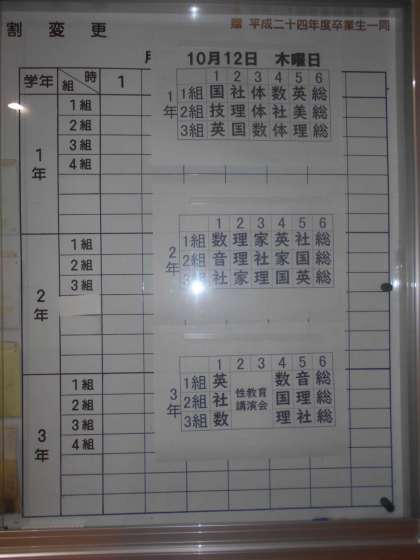 割変更
贈 平成二十四年度卒業生一同
学年 組 時 1
1年
1組
2組
3組
4組
2年
1組
2組
3組
3年
1組
2組
3組
4組
10月12日 木曜日
1年
1 2 3 4 5 6
1組 国 社 体 数 英 総
2組 技 理 体 社 美 総
3組 英 国 数 体 理 総
2年
1 2 3 4 5 6
1組 数 理 家 英 社 総
2組 音 理 社 家 国 総
3組 社 家 理 国 英 総
3年
1 2 3 4 5 6
1組 英 数 音 総
2組 社 性教育 講演会 国 理 総
3組 数 理 社 総